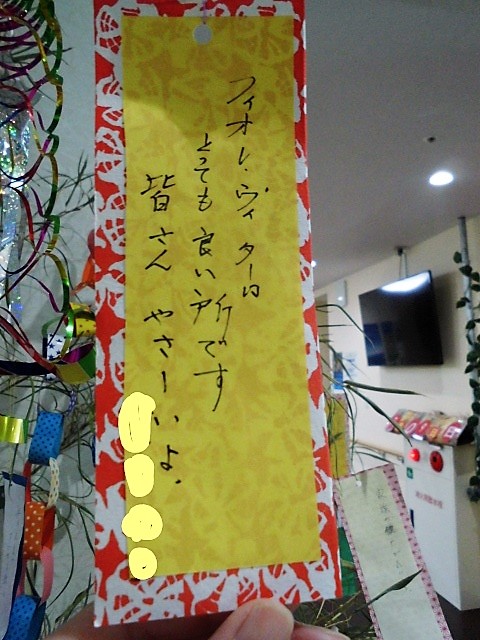 フィオレ・ヴィターは
とっても良い所です
皆さん やさーいよ、